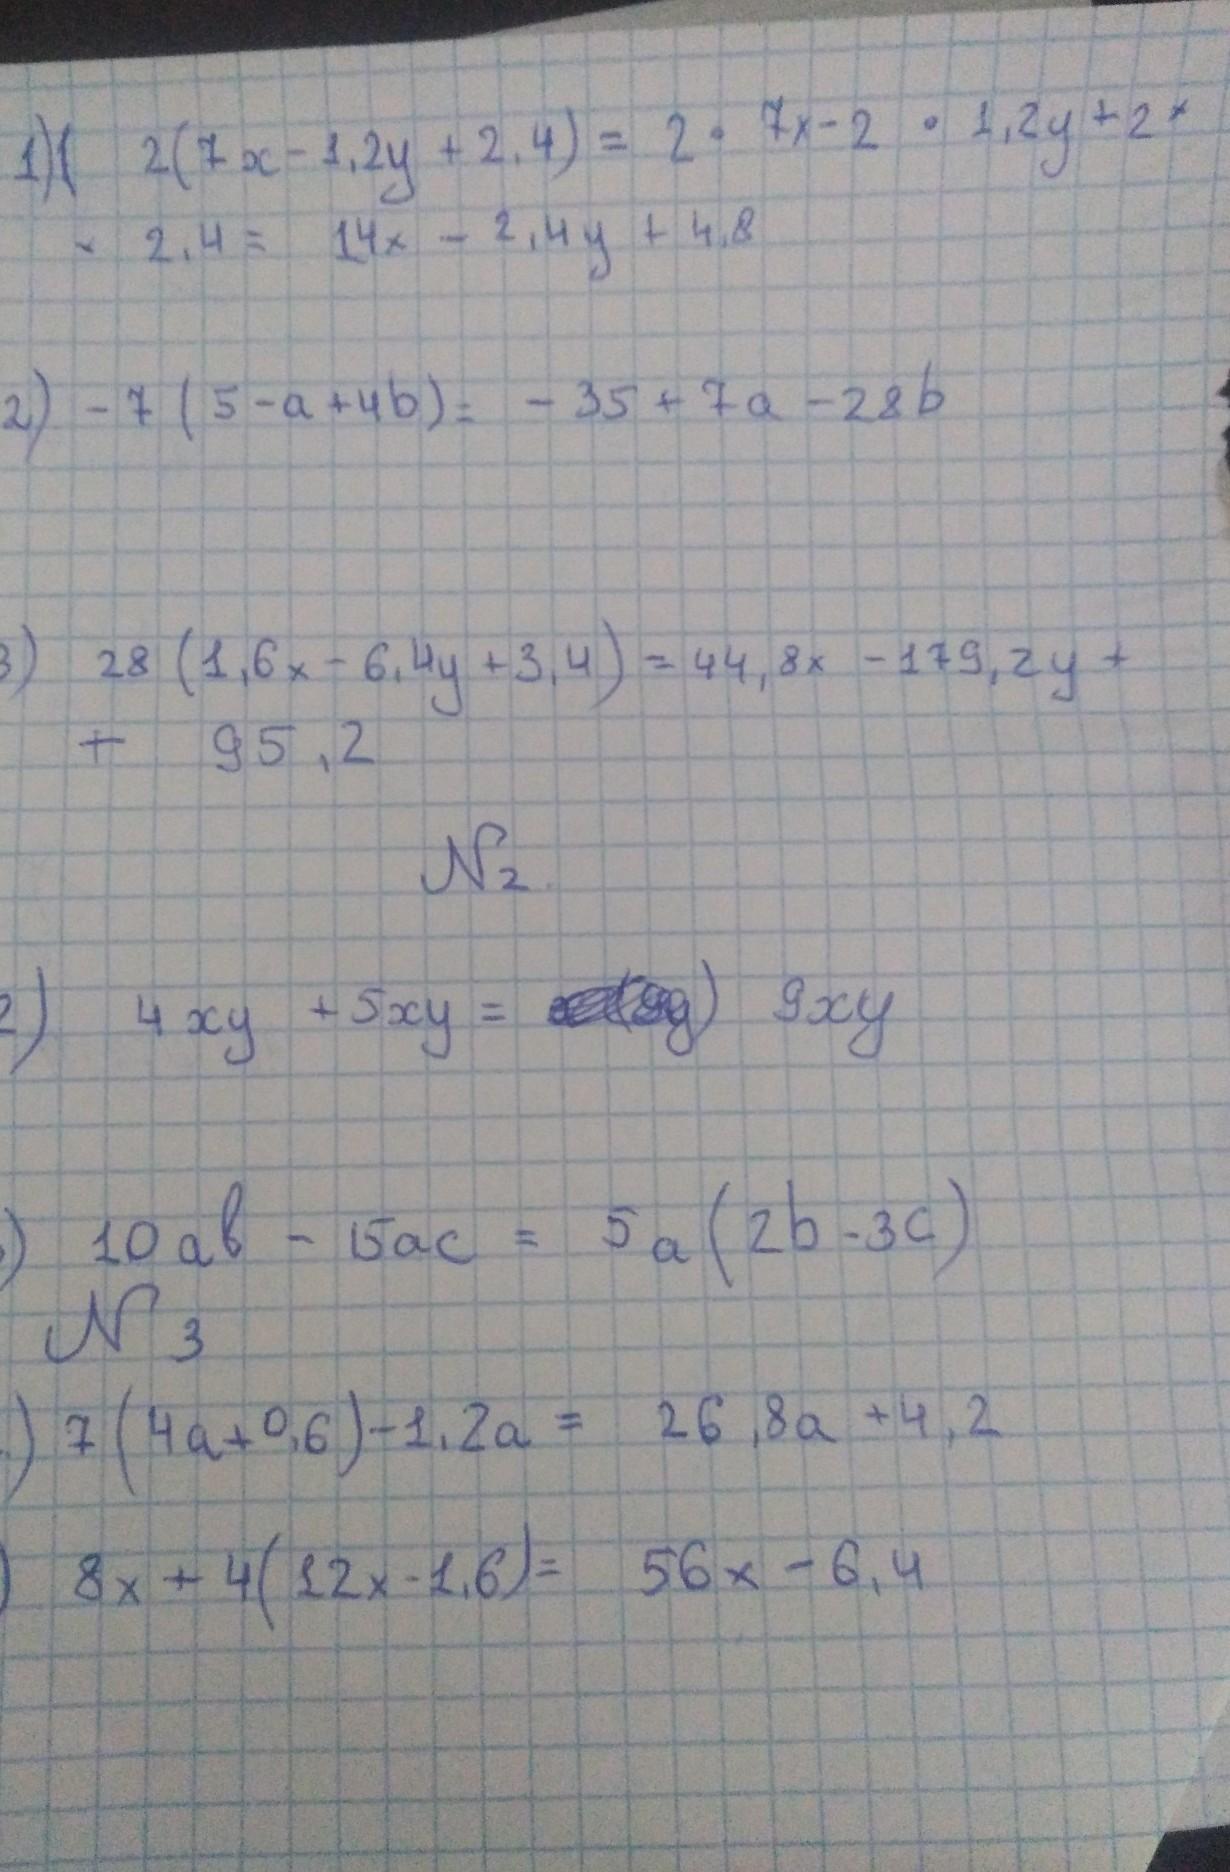 1) 2(7x - 1,2y + 2,4) = 2 · 7x - 2 · 1,2y + 2 ×
× 2,4 = 14x - 2,4y + 4,8
2) -7(5 - a + 4b) = -35 + 7a - 28b
3) 28(1,6x - 6,4y + 3,4) = 44,8x - 179,2y +
+ 95,2
N2
2) 4xy + 5xy = 9xy
) 10ab - 15ac = 5a(2b - 3c)
N3
) 7(4a + 0,6) - 1,2a = 26,8a + 4,2
) 8x + 4(12x - 1,6) = 56x - 6,4